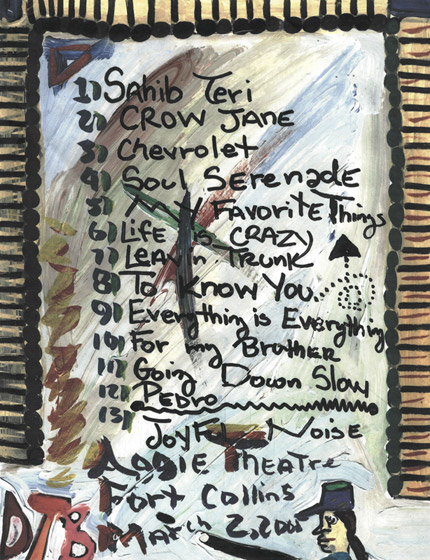 1) Sahib Teri
2) CROW JANE
3) Chevrolet
4) Soul Serenade
5) My Favorite Things
6) Life is CRAZY
7) Leavin Trunk
8) To Know You...
9) Everything is Everything
10) For my Brother
11) Going Down Slow
12) Pedro
13)
JoyFuL Noise
Aggie Theatre
Fort Collins
March 2, 2001
DTB